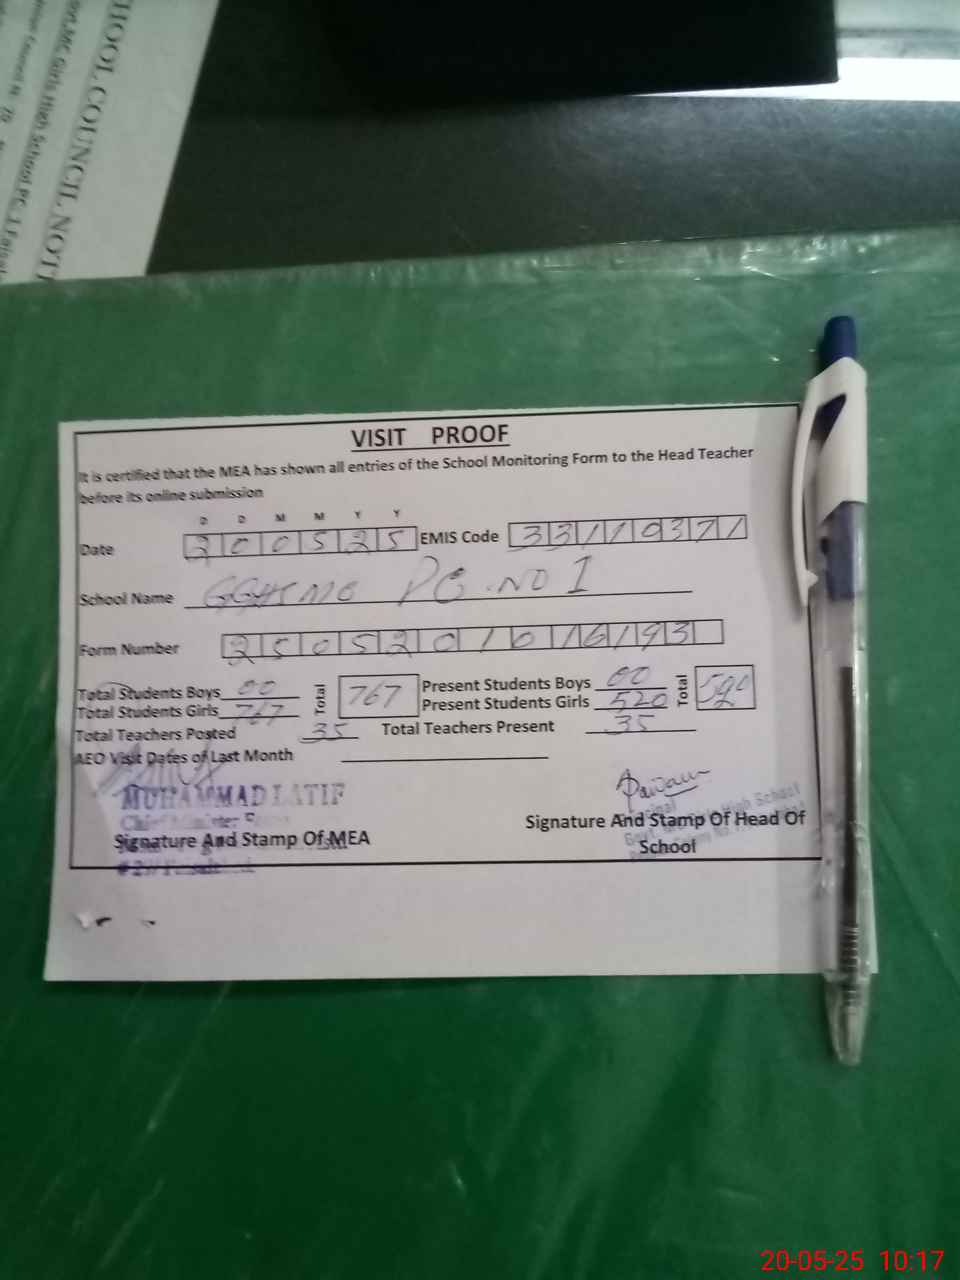 HOOL COUNCIL NOTI
MC Girls High School PC-1 Faisal
VISIT PROOF
It is certified that the MEA has shown all entries of the School Monitoring Form to the Head Teacher
before its online submission
D D M M Y Y
Date 200525 EMIS Code 33119371
School Name GGHS MC PC. NO I
Form Number 250520101619 3
Total Students Boys 00 Total 767 Present Students Boys 00 Total 520
Total Students Girls 767 Present Students Girls 520
Total Teachers Posted 35 Total Teachers Present 35
AEO Visit Dates of Last Month
MUHAMMAD LATIF
Signature And Stamp Of MEA
Principal
High School
Signature And Stamp Of Head Of
School
20-05-25 10:17